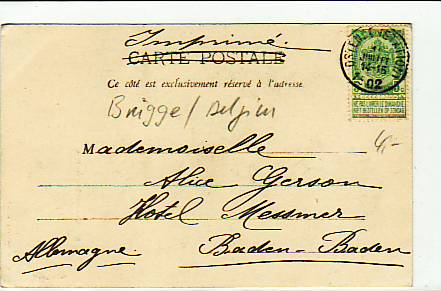 Imprimé.
CARTE POSTALE
Ce côté est exclusivement réservé à l'adresse.
Brügge / Belgien
Mademoiselle
Alice Gerson
Hotel Messmer
Allemagne. Baden-Baden
OSTENDE
JUILL
14-15
02
NE PAS LIVRER LE DIMANCHE
NIET BESTELLEN OP ZONDAG
4,-